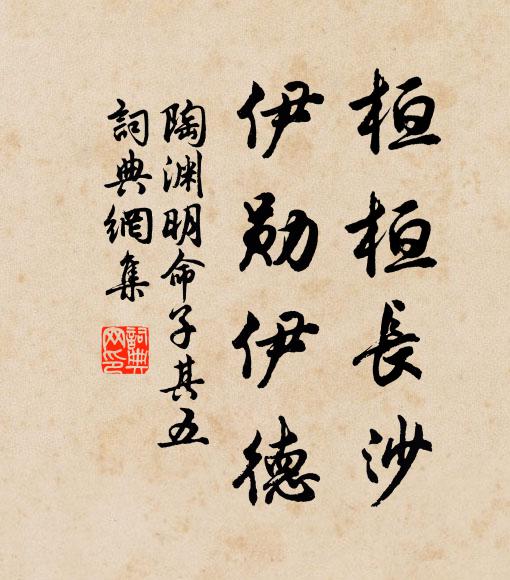 桓桓長沙
伊勋伊德
陶渊明命子其五
詞典網集
詞典
网印